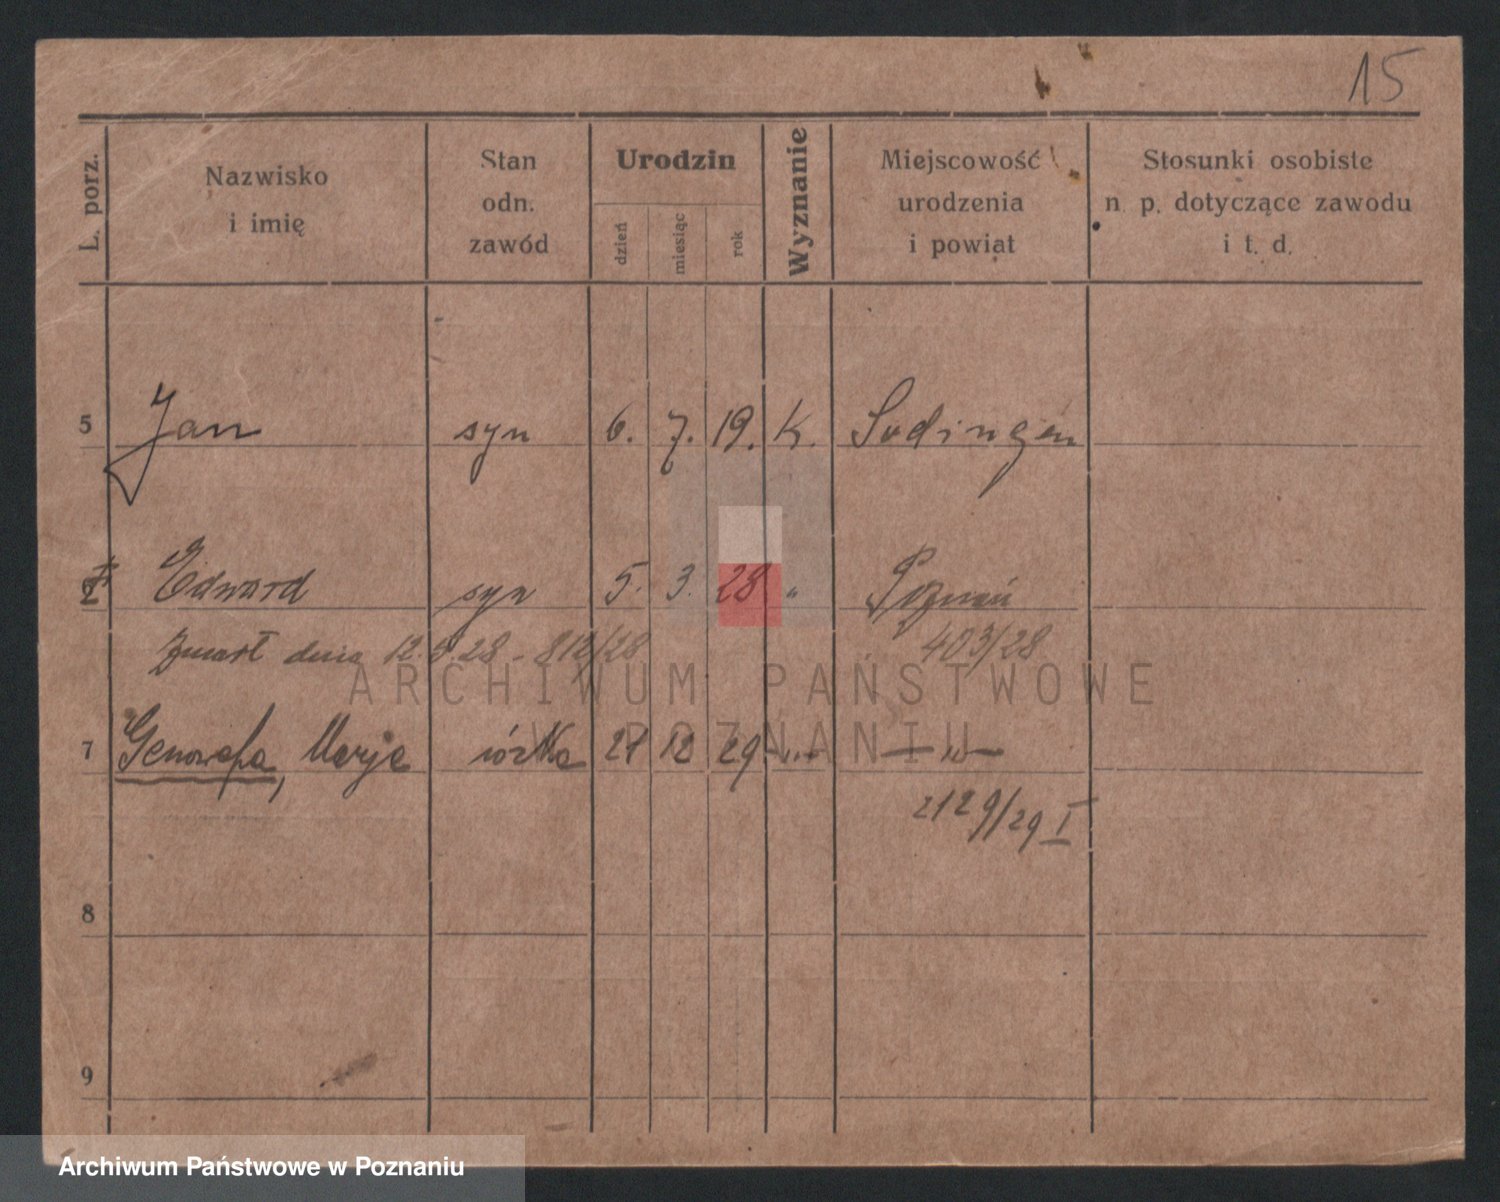 15
L. porz.
Nazwisko
i imię
Stan
odn.
zawód
Urodzin
dzień
miesiąc
rok
Wyznanie
Miejscowość
urodzenia
i powiat
Stosunki osobiste
n. p. dotyczące zawodu
i t. d.
5 Jan syn 6. 7. 19. K. Sodingen
Edward syn 5. 3. 28 " Poznań
zmarł dnia 12. 28 - 812/28 403/28
ARCHIWUM PAŃSTWOWE
W POZNANIU
7 Genowefa, Marja córka 21 12 29 -"- -"-
2129/29 I
8
9
Archiwum Państwowe w Poznaniu